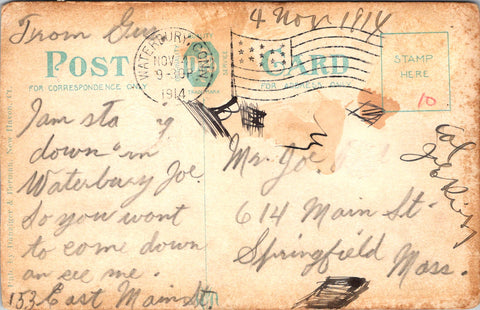 From Guy
4 Nov 1914
POST CARD
FOR CORRESPONDENCE ONLY
FOR ADDRESS ONLY
STAMP
HERE
WATERBURY, CONN.
NOV
9-30P
1914
10
I am sta g
down in
Waterbury Joe.
So you want
to come down
an see me.
153 East Main St.
Mr. Joe.
614 Main St.
Springfield
Mass.
Pub. by Danziger & Berman, New Haven, Ct.